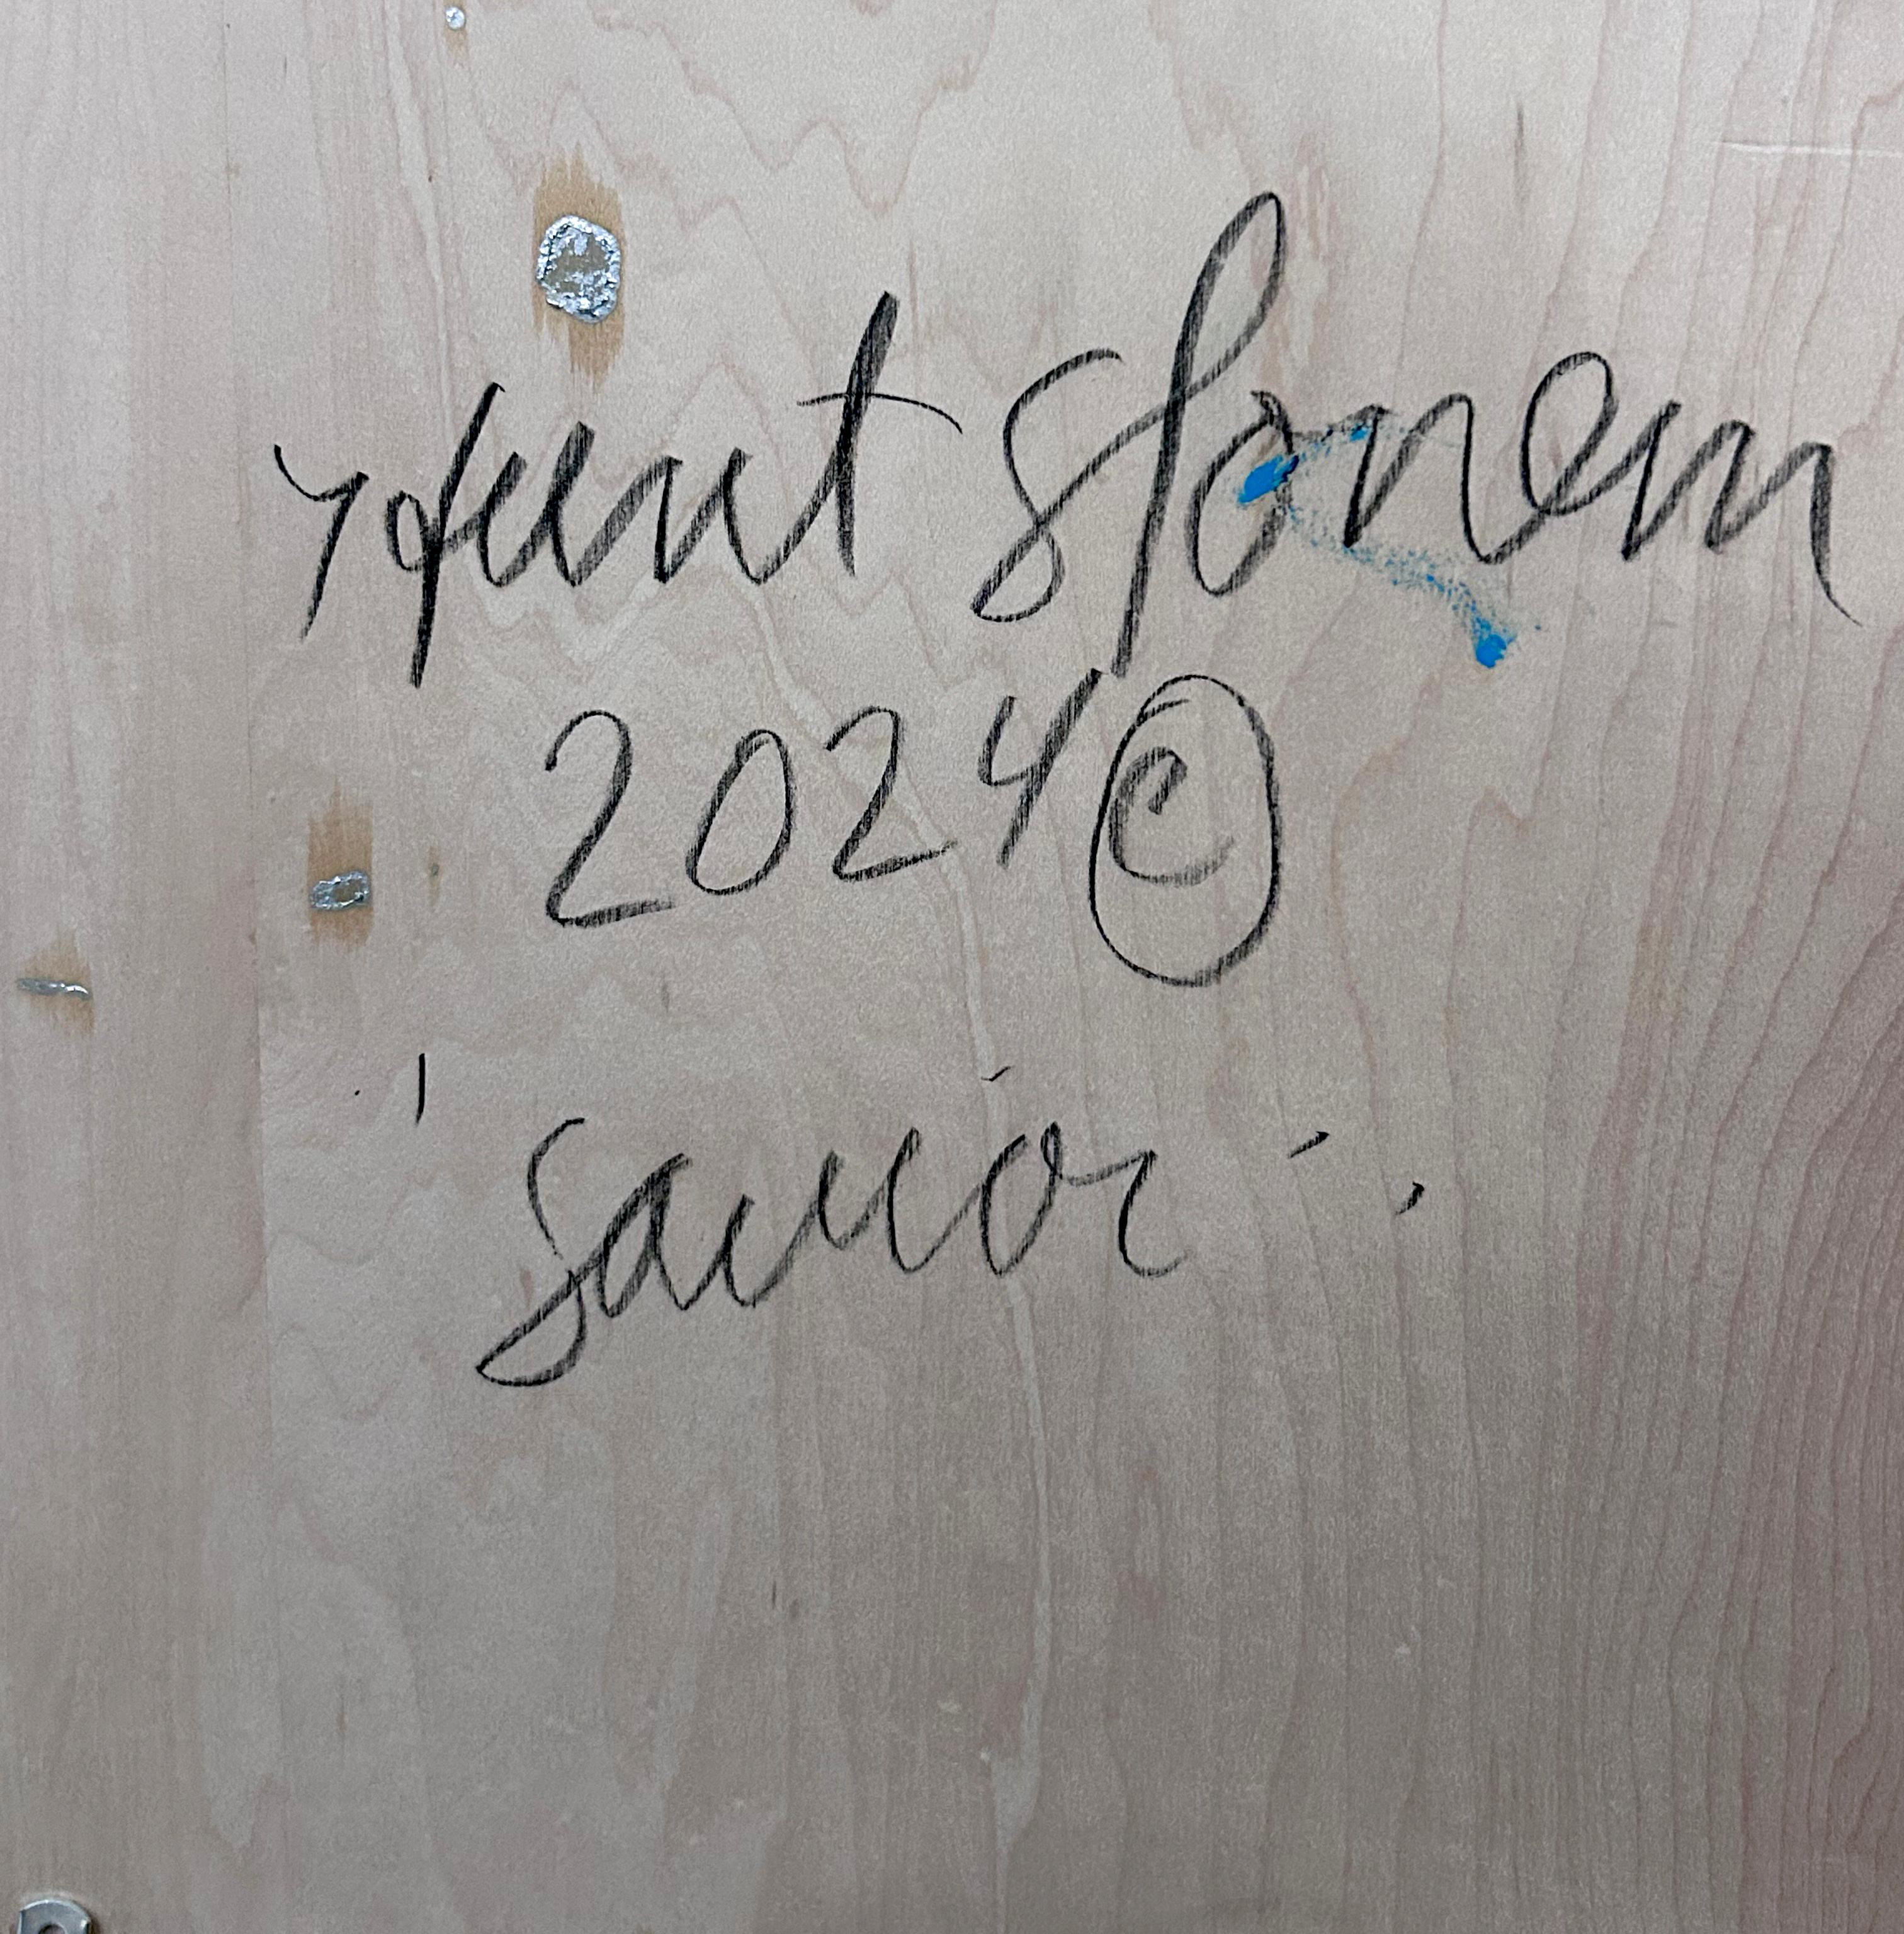 Hunt Slonem
2024 ©
"Savior"